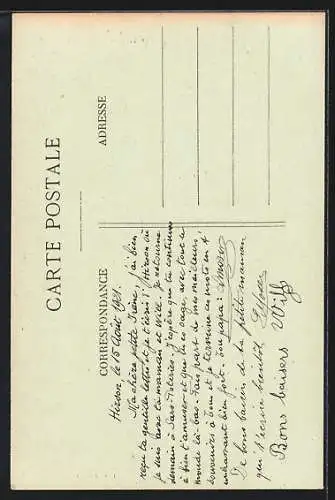 CARTE POSTALE
CORRESPONDANCE
ADRESSE
Hirson, le 15 Août 1921.
Ma chère petite Irène, j'ai bien
reçu ta gentille lettre et je t'écris d'Hirson où
je suis avec ta maman et Willy. Je retourne
demain à Sars-Poteries. J'espère que tu continues
à bien t'amuser et que tu es sage avec tout le
monde là-bas. Fais part de mes meilleurs
souvenirs à tous et je termine ces mots en t'
embrassant bien fort. Ton papa:
De bons baisers de ta petite maman
qui t'écrira bientôt.
Bons baisers
Willy